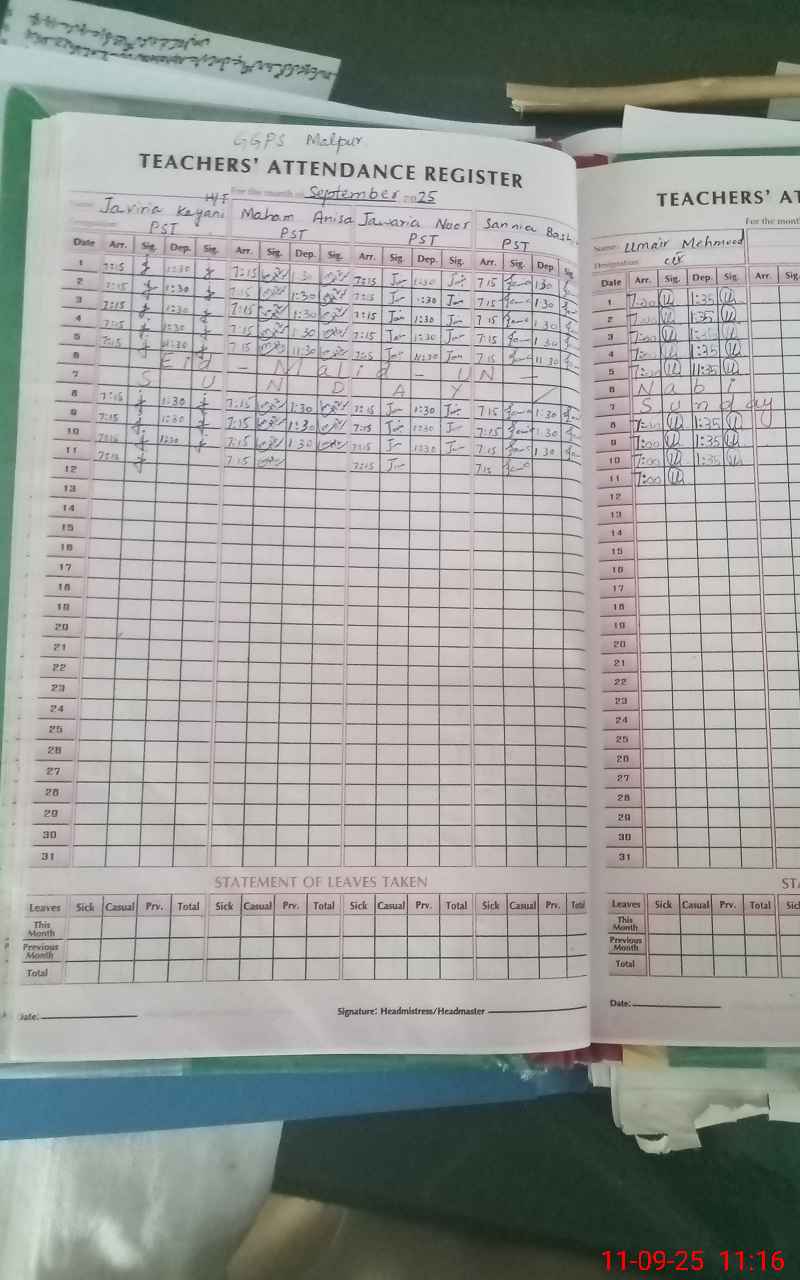 GGPS Malpur
TEACHERS' ATTENDANCE REGISTER
For the month of September 2025
Name: Javiria Kayani H/T Maham Anisa Jawaria Noor Sannia Bashi
PST PST PST PST
Date Arr. Sig. Dep. Sig. Arr. Sig. Dep. Sig. Arr. Sig. Dep. Sig. Arr. Sig. Dep. Sig.
1 7:15 1:30 7:15 1:30 7:15 1:30 7:15 1:30
2 7:15 1:30 7:15 1:30 7:15 1:30 7:15 1:30
3 7:15 1:30 7:15 1:30 7:15 1:30 7:15 1:30
4 7:15 1:30 7:15 1:30 7:15 1:30 7:15 1:30
5 7:15 11:30 7:15 11:30 7:15 11:30 7:15 11:30
6 Eid - Milalid - UN -
7 S U N D A Y
8 7:15 1:30 7:15 1:30 7:15 1:30 7:15 1:30
9 7:15 1:30 7:15 1:30 7:15 1:30 7:15 1:30
10 7:15 1:30 7:15 1:30 7:15 1:30 7:15 1:30
11 7:15 7:15 7:15 7:15
12
13
14
15
16
17
18
19
20
21
22
23
24
25
26
27
28
29
30
31
STATEMENT OF LEAVES TAKEN
Leaves Sick Casual Prv. Total Sick Casual Prv. Total Sick Casual Prv. Total Sick Casual Prv. Total
This
Month
Previous
Month
Total
Date: Signature: Headmistress/Headmaster
TEACHERS' AT
For the mont
Name: Umair Mehmood
Designation:
Date Arr. Sig. Dep. Sig. Arr. Sig.
1 7:00 1:35
2 7:00 1:35
3 7:00 1:35
4 7:00 1:35
5 7:00 11:35
6 N a b i
7 S u n d a y
8 7:00 1:35
9 7:00 1:35
10 7:00 1:35
11 7:00
12
13
14
15
16
17
18
19
20
21
22
23
24
25
26
27
28
29
30
31
STA
Leaves Sick Casual Prv. Total Sick
This
Month
Previous
Month
Total
Date:
11-09-25 11:16